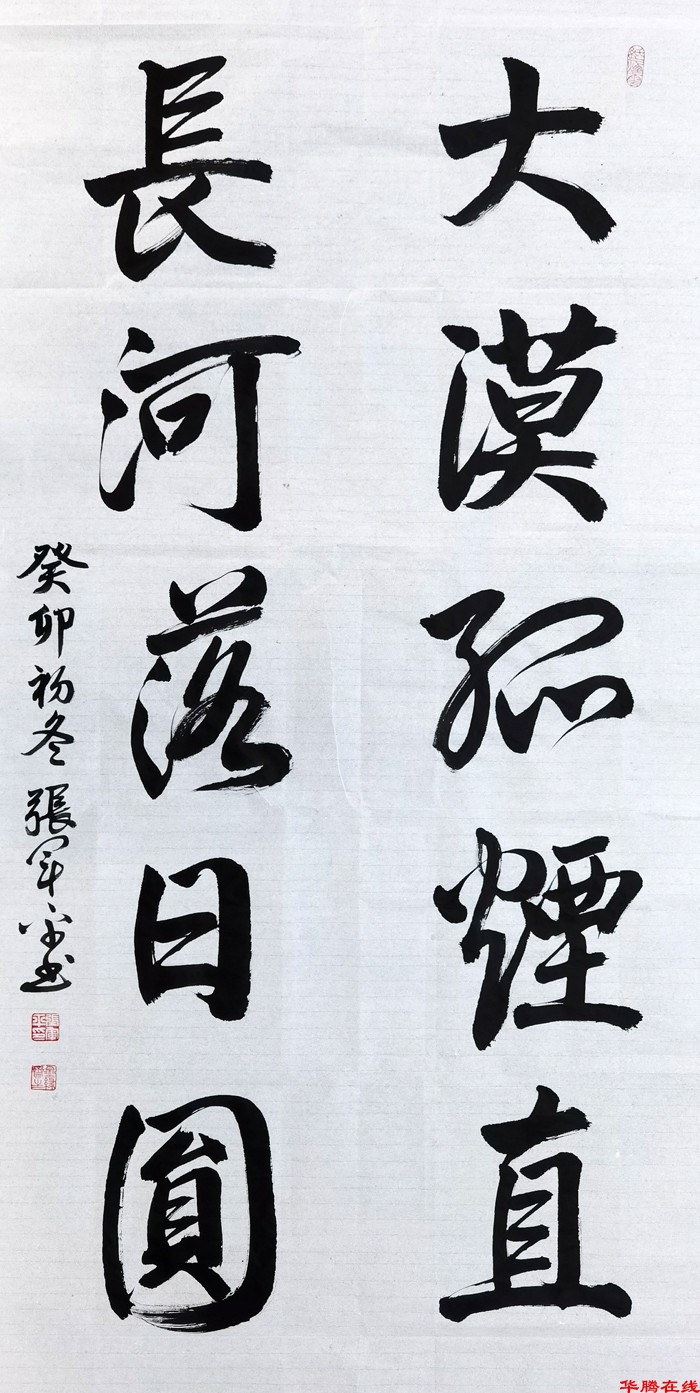 大漠孤煙直
長河落日圓
癸卯初冬張軍平书
华腾在线